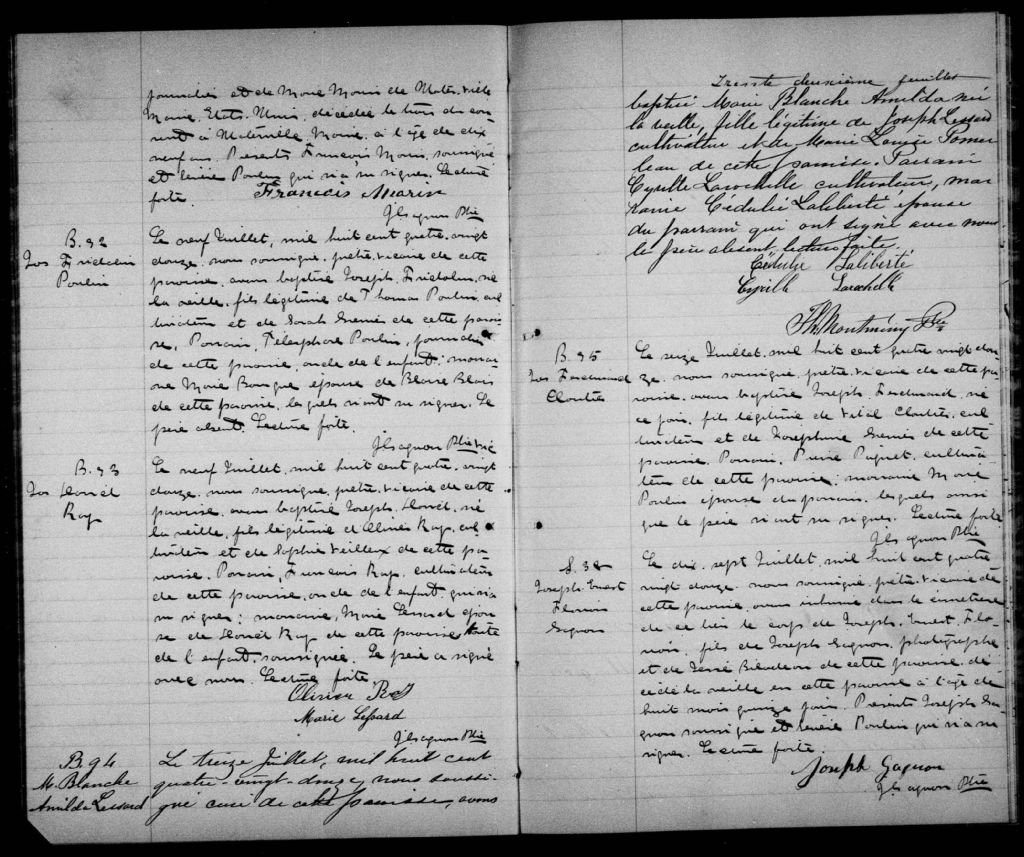 journalier et de Marie Morin de Waterville
Maine, Etats-Unis, décédée le trois du cou
rant à Waterville Maine, à l'âge de dix
neuf ans. Présents Francois Morin, soussigné
et Poulin qui n'a su signer. Lecture
faite.
Francois Marin
J Gagnon Ptre
B. 92
Jos Fridolin
Poulin
Le neuf Juillet, mil huit cent quatre-vingt
douze, nous soussigné, prêtre, vicaire de cette
paroisse, avons baptisé Joseph Fridolin, né
la veille, fils légitime de Thomas Poulin, cul
tivateur et de Sarah de cette parois
se, Parrain, Télesphore Poulin, journalier
de cette paroisse, oncle de l'enfant; marrai
ne Marie épouse de Blaise Blais
de cette paroisse, lesquels n'ont su signer. Le
père absent. Lecture faite.
J Gagnon Ptre vic
B. 93
Jos Honoré
Roy
Le neuf Juillet, mil huit cent quatre-vingt
douze, nous soussigné, prêtre, vicaire de cette
paroisse, avons baptisé Joseph, Honoré, né
la veille, fils légitime d'Olivier Roy, cul
tivateur et de Sophie Veilleux de cette pa
roisse. Parrain, Francois Roy, cultivateur
de cette paroisse, oncle de l'enfant, qui n'a
su signer; marraine, Marie Lessard épou
se de Honoré Roy de cette paroisse tante
de l'enfant, soussignée. Le père a signé
avec nous. Lecture faite.
Olivier Roy
Marie Lessard
J Gagnon Ptre
B. 94
M. Blanche
Amilda Lessard
Le treize Juillet, mil huit cent
quatre-vingt-douze, nous soussi-
gné curé de cette paroisse, avons
Trente deuxième feuillet
baptisé Marie Blanche Amilda née
la veille, fille légitime de Joseph Lessard
cultivateur et de Marie Louise Pomer
leau de cette paroisse. Parrain
Cyrille Larochelle cultivateur, mar
raine Cédulie Laliberté épouse
du parrain qui ont signé avec nous
le père absent lecture faite.
Cédulie Laliberté
Cyrille Larochelle
Th. Montminy Ptre
B. 95
Jos Ferdinand
Cloutier
Le seize Juillet, mil huit cent quatre vingt dou
ze, nous soussigné, prêtre, vicaire de cette pa
roisse, avons baptisé Joseph, Ferdinand, né
ce jour, fils légitime de Vital Cloutier, cul
tivateur et de Joséphine de cette
paroisse. Parrain, Pierre Paquet, cultiva
teur de cette paroisse; marraine Marie
Poulin épouse du parrain, lesquels ainsi
que le père n'ont su signer. Lecture faite
J Gagnon Ptre
S. 38
Joseph Ernest
Gagnon
Le dix-sept Juillet, mil huit cent quatre
vingt douze, nous soussigné, prêtre, vicaire de
cette paroisse, avons inhumé dans le cimetière
de ce lieu le corps de Joseph, Ernest,
fils de Joseph Gagnon, photographe
et de Bilodeau de cette paroisse, dé
cédé la veille en cette paroisse à l'âge de
huit mois quinze jours. Présents Joseph Ga
gnon soussigné et Poulin qui n'a su
signer. Lecture faite.
Joseph Gagnon
J Gagnon Ptre